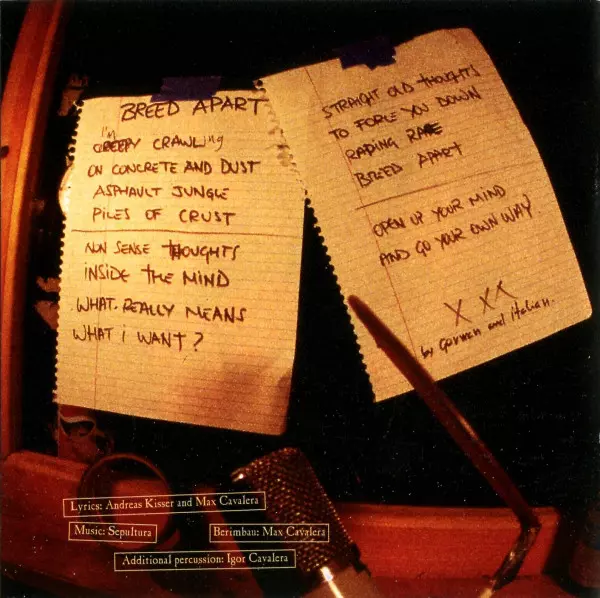 BREED APART
I'm
CREEPY CRAWLing
ON CONCRETE AND DUST
ASPHAULT JUNGLE
PILES OF CRUST
NON SENSE THOUGHTS
INSIDE THE MIND
WHAT REALLY MEANS
WHAT I WANT?
STRAIGHT OLD THOUGHTS
TO FORCE YOU DOWN
RAPING RACE
BREED APART
OPEN UP YOUR MIND
AND GO YOUR OWN WAY.
X XX
by German and italian.
Lyrics: Andreas Kisser and Max Cavalera
Music: Sepultura
Berimbau: Max Cavalera
Additional percussion: Igor Cavalera